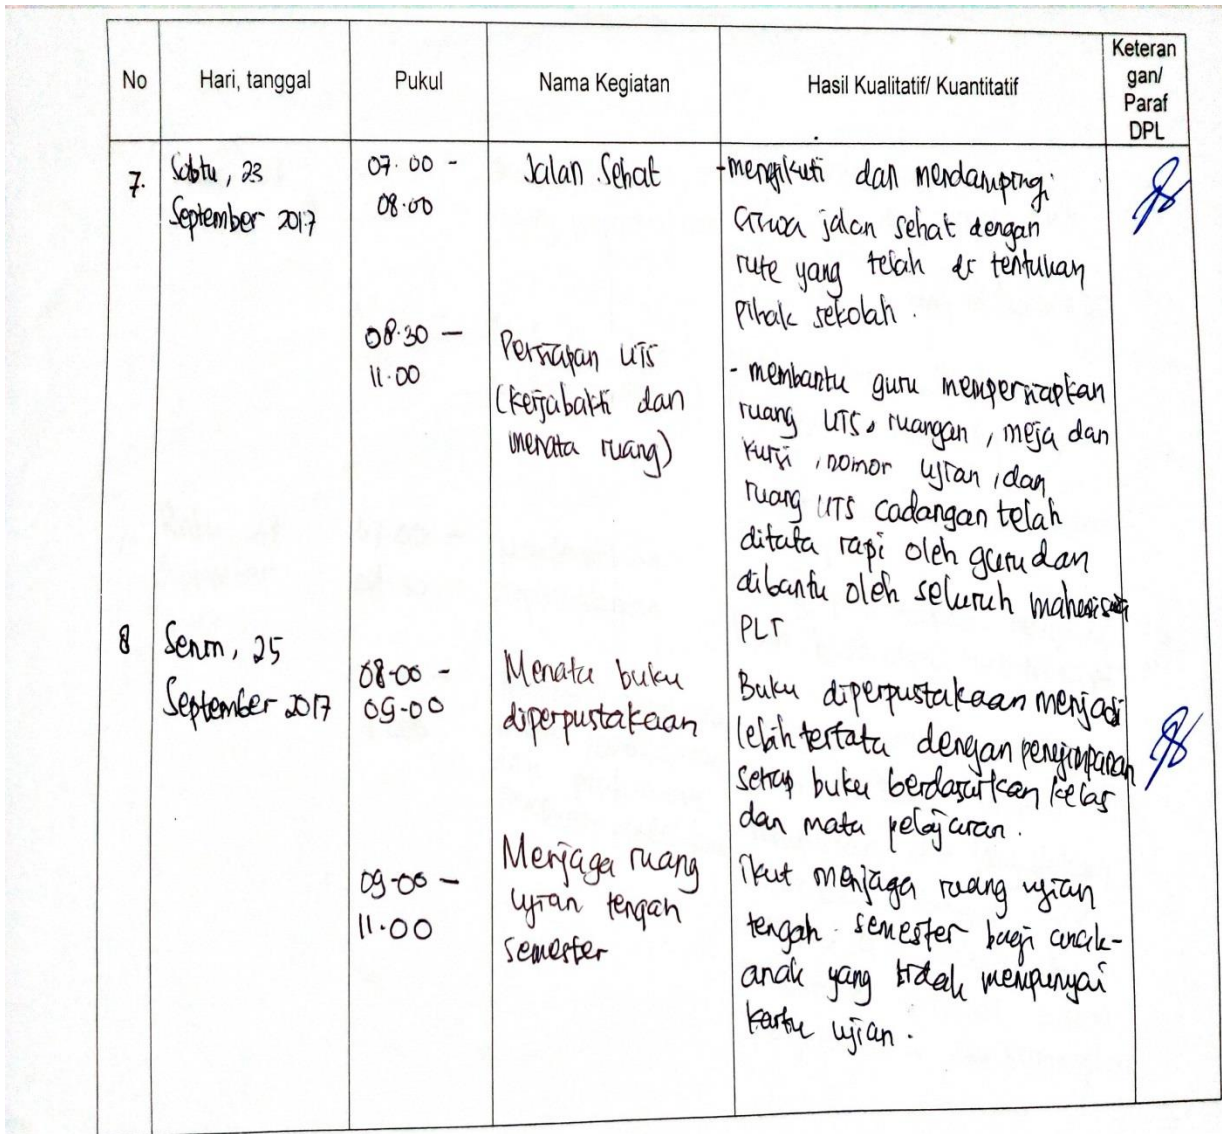 No
Hari, tanggal
Pukul
Nama Kegiatan
Hasil Kualitatif/ Kuantitatif
Keteran
gan/
Paraf
DPL
7.
Sabtu, 23
September 2017
07.00 -
08.00
Jalan Sehat
-mengikuti dan mendampingi
siswa jalan sehat dengan
rute yang telah di tentukan
pihak sekolah.
08.30 -
11.00
Persiapan UTS
(kerjabakti dan
menata ruang)
- membantu guru mempersiapkan
ruang UTS. ruangan, meja dan
kursi, nomor ujian, dan
ruang UTS cadangan telah
ditata rapi oleh guru dan
dibantu oleh seluruh mahasiswa
PLT
8
Senin, 25
September 2017
08-00 -
09-00
Menata buku
diperpustakaan
Buku diperpustakaan menjadi
lebih tertata dengan penyimpanan
setiap buku berdasarkan kelas
dan mata pelajaran.
09-00 -
11.00
Menjaga ruang
ujian tengah
semester
ikut menjaga ruang ujian
tengah semester bagi anak-
anak yang tidak mempunyai
kartu ujian.